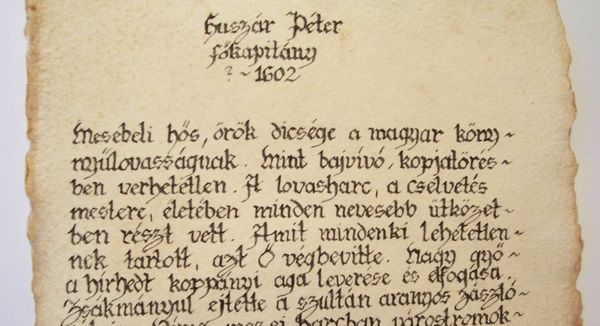 Huszár Péter
főkapitány
? ~ 1602
Mesebeli hős, örök dicsége a magyar köny~
nyűlovasságnak. Mint bajvívó, kopjatörés~
ben verhetetlen. A lovasharc, a cselvetés
mestere, életében minden nevesebb ütközet~
ben részt vett. Amit mindenki lehetetlen~
nek tartott, azt Ő végbevitte. Nagy győ~
a hírhedt koppányi aga leverése és elfogása.
Zsákmányul ejtette a szultán aranyos zászló~
harcban városromok~